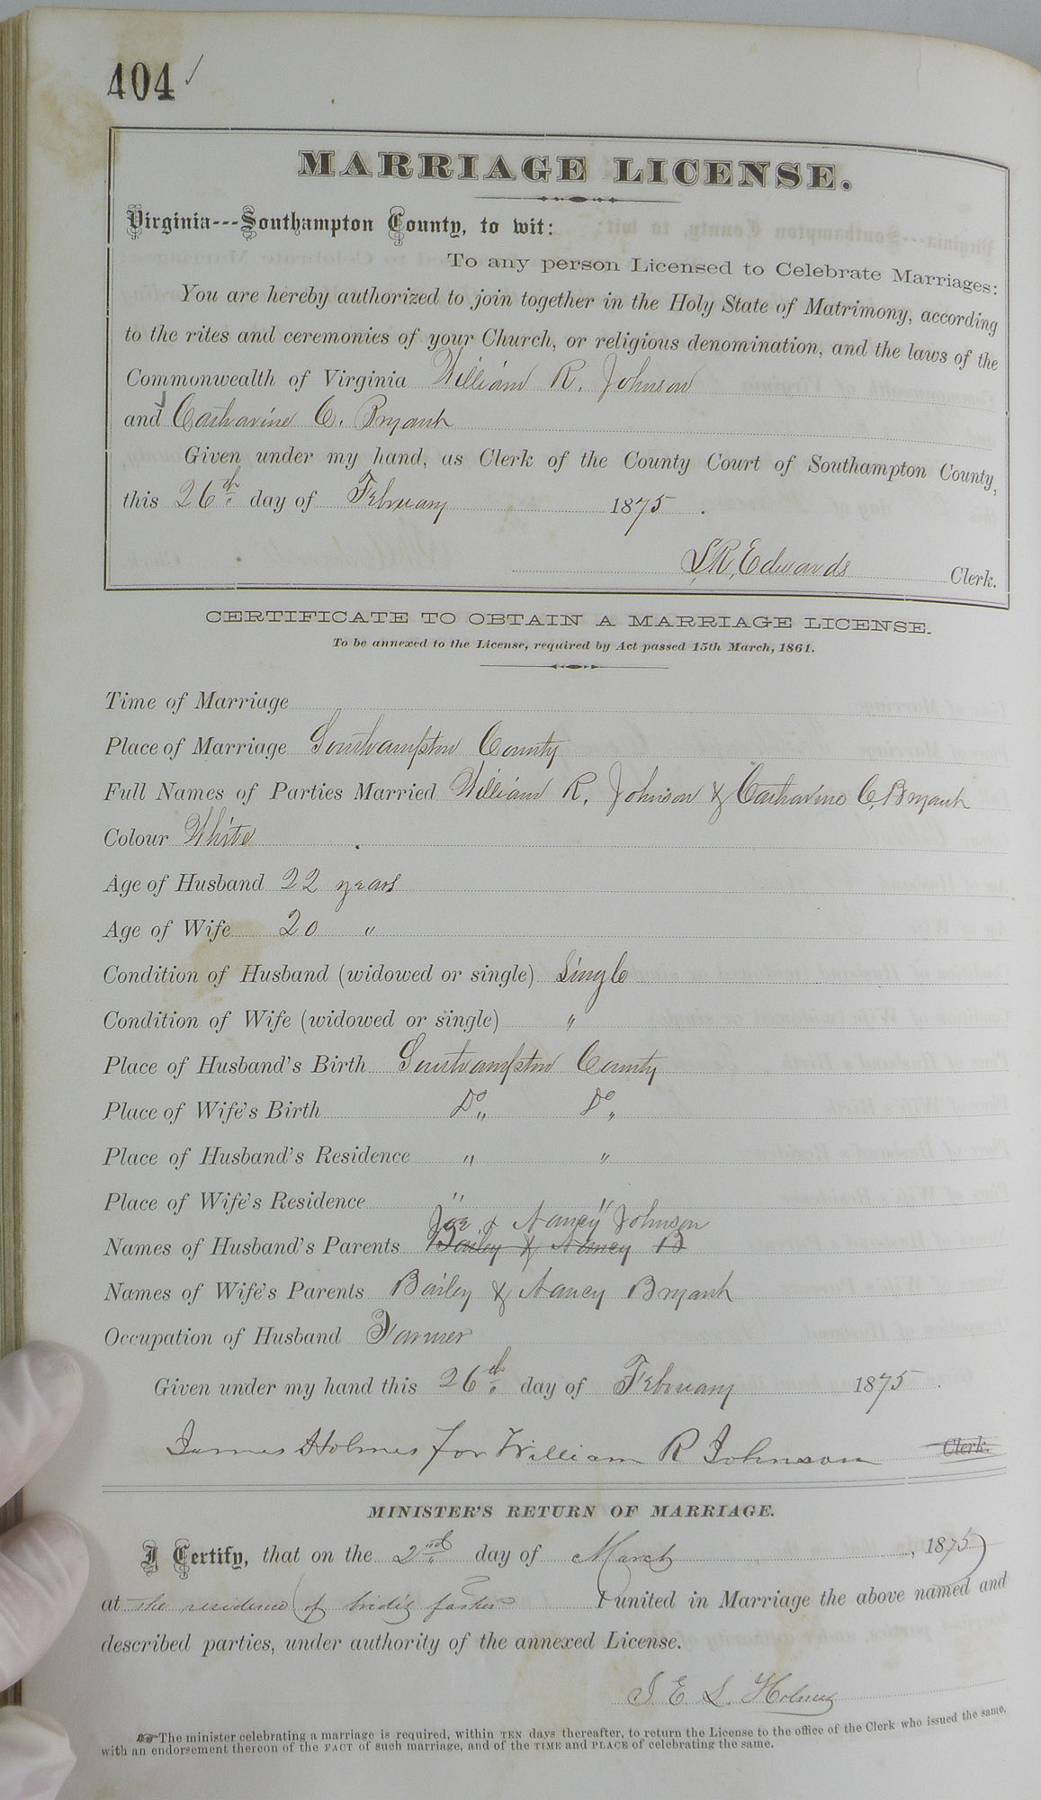 404 ✓
MARRIAGE LICENSE.
Virginia---Southampton County, to wit:
To any person Licensed to Celebrate Marriages:
You are hereby authorized to join together in the Holy State of Matrimony, according
to the rites and ceremonies of your Church, or religious denomination, and the laws of the
Commonwealth of Virginia William R. Johnson
and Catharine C. Bryant
Given under my hand, as Clerk of the County Court of Southampton County,
this 26th day of February 1875.
L. R. Edwards Clerk.
CERTIFICATE TO OBTAIN A MARRIAGE LICENSE.
To be annexed to the License, required by Act passed 15th March, 1861.
Time of Marriage
Place of Marriage Southampton County
Full Names of Parties Married William R. Johnson & Catharine C. Bryant
Colour White
Age of Husband 22 years
Age of Wife 20 "
Condition of Husband (widowed or single) Single
Condition of Wife (widowed or single) "
Place of Husband's Birth Southampton County
Place of Wife's Birth Do Do
Place of Husband's Residence " "
Place of Wife's Residence " "
Joe & Nancy Johnson
Names of Husband's Parents Bailey & Nancy B
Names of Wife's Parents Bailey & Nancy Bryant
Occupation of Husband Farmer
Given under my hand this 26th day of February 1875.
James Holmes for William R Johnson Clerk.
MINISTER'S RETURN OF MARRIAGE.
I Certify, that on the 2nd day of March, 1875,
at the residence of bride's father I united in Marriage the above named and
described parties, under authority of the annexed License.
J E L. Holmes
☞The minister celebrating a marriage is required, within TEN days thereafter, to return the License to the office of the Clerk who issued the same,
with an endorsement thereon of the FACT of such marriage, and of the TIME and PLACE of celebrating the same.